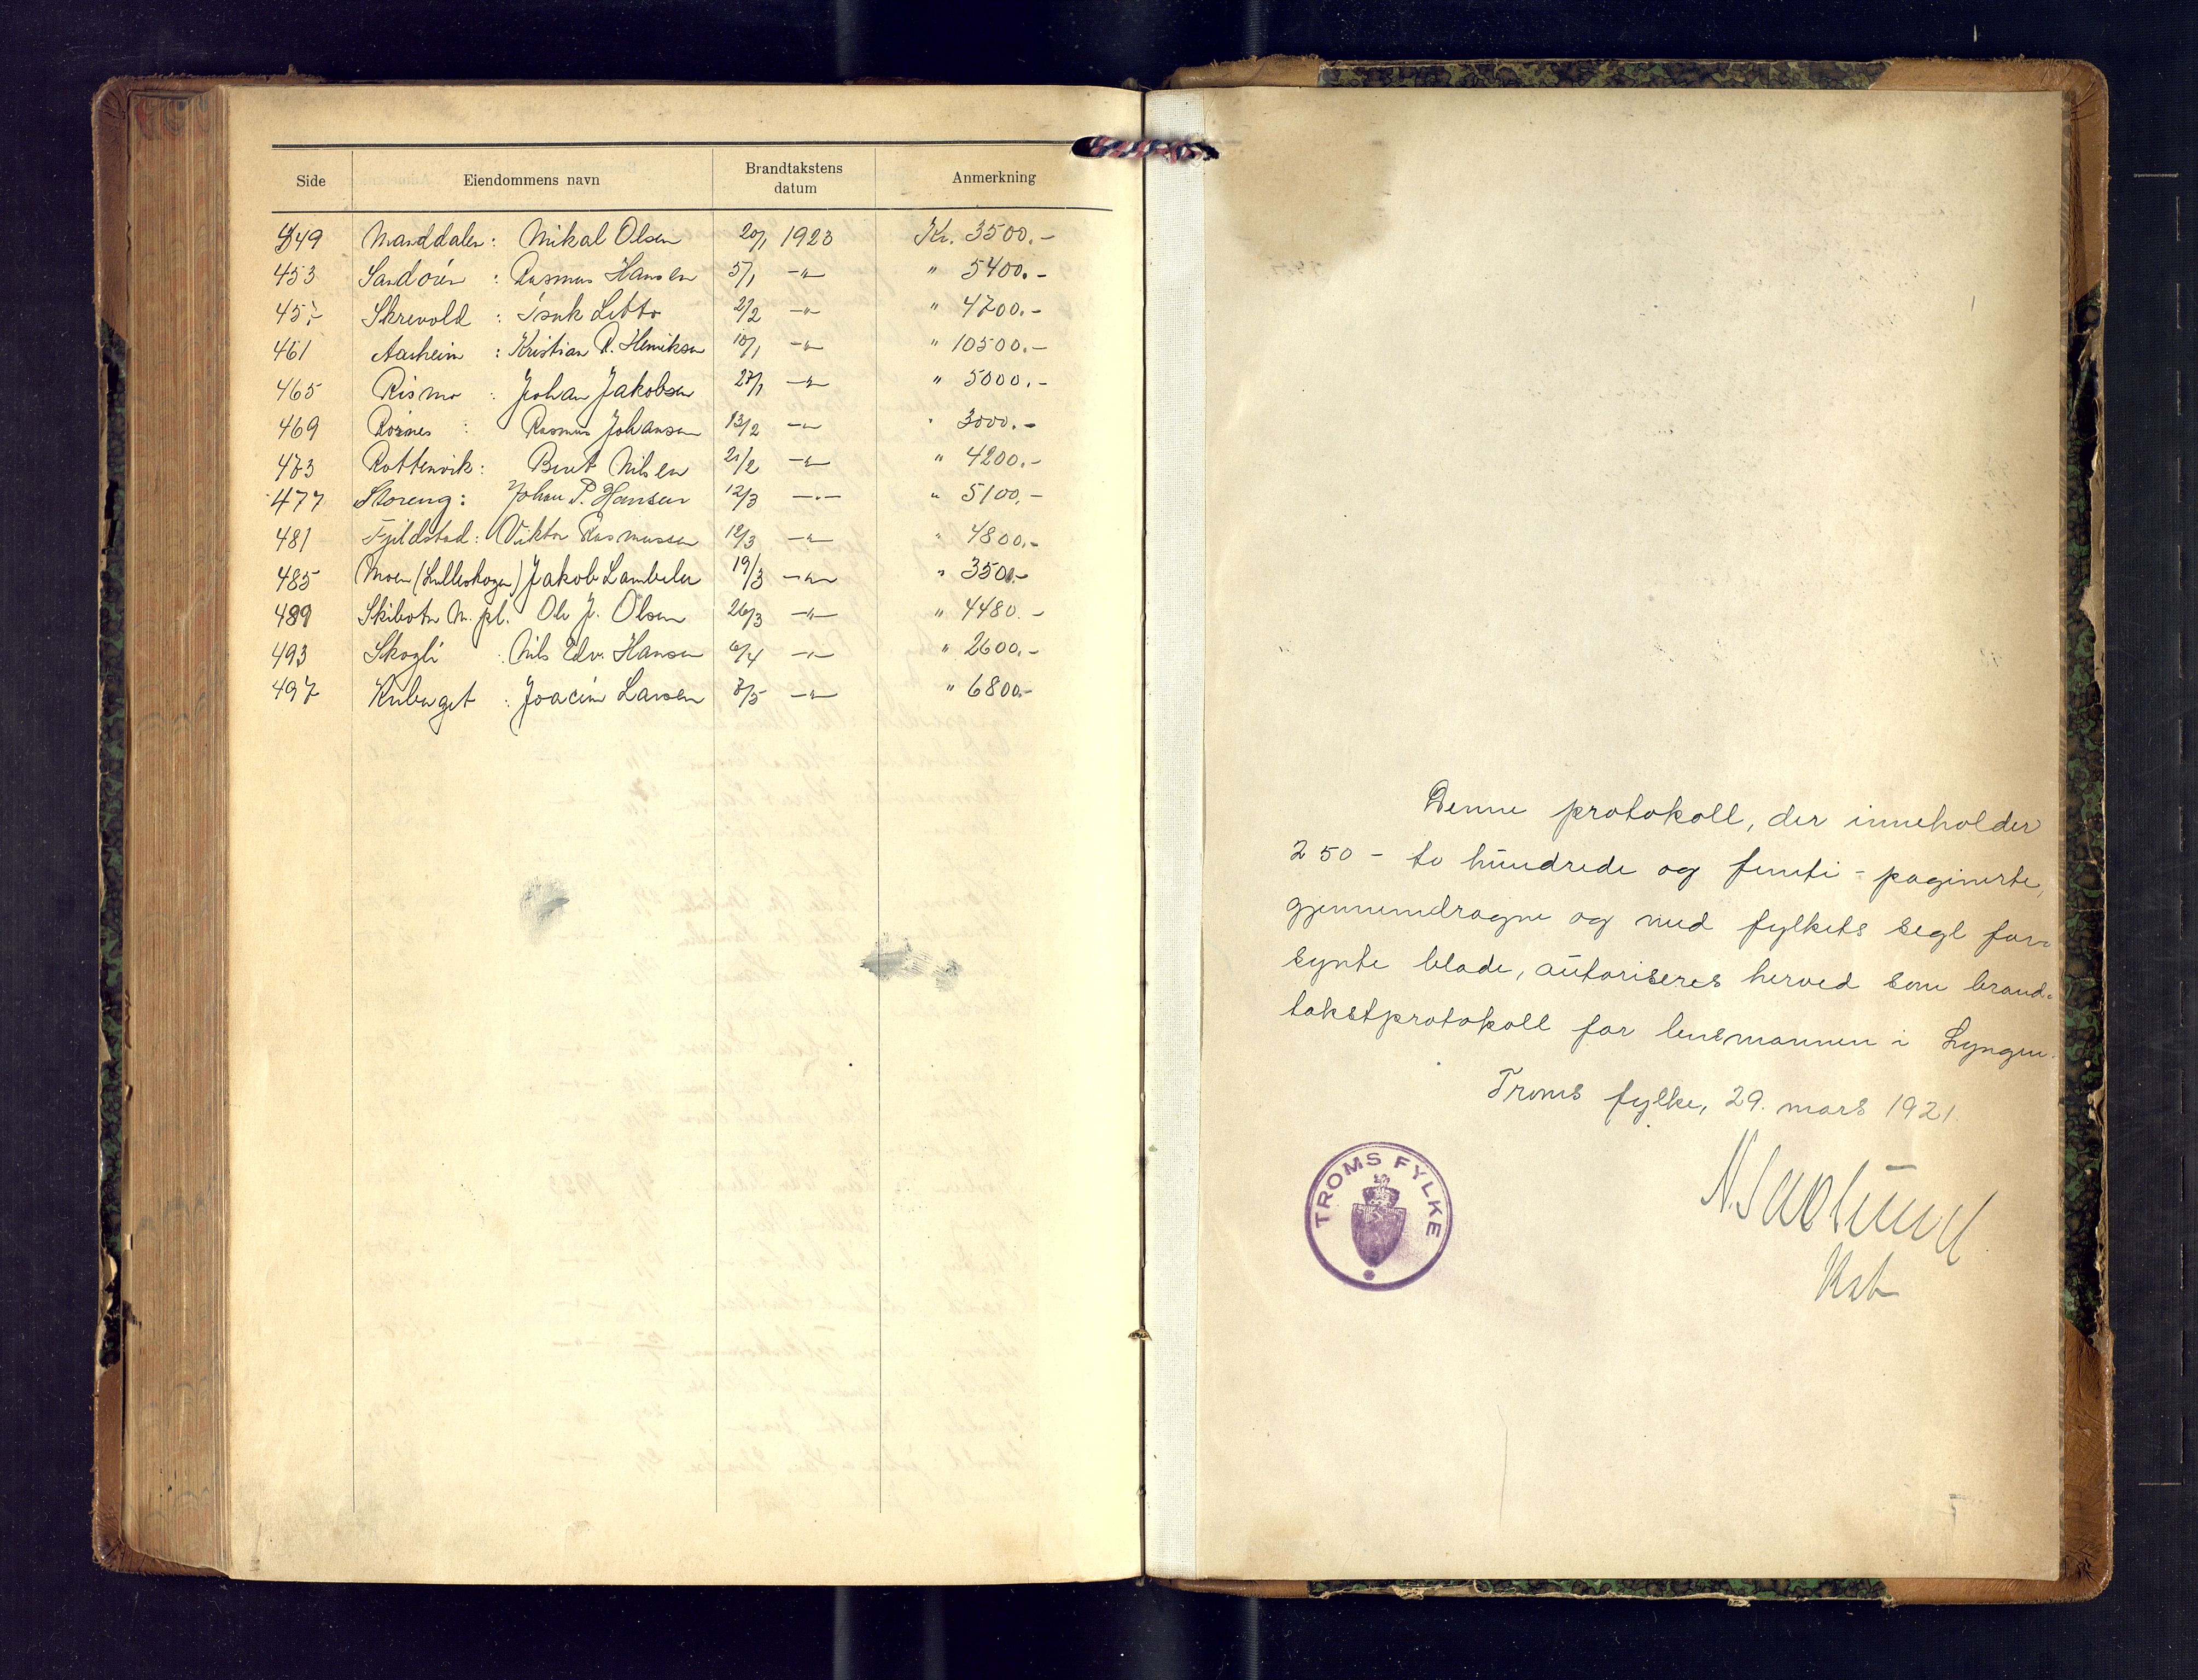 Side Eiendommens navn Brandtakstens datum Anmerkning
449 Manddalen: Mikal Olsen 20/1 1923 Kr. 3500.-
453 Sandören : Rasmus Hansen 5/1 -"- " 5400.-
457 Skrevold : Isak Lebto 2/2 -"- " 4700.-
461 Aarheim : Kristian R. Henriksen 10/1 -"- " 10500.-
465 Rismo : Johan Jakobsen 27/1 -"- " 5000.-
469 Rörnes : Rasmus Johansen 13/2 -"- " 3000.-
473 Rottenvik : Berit Nilsen 21/2 -"- " 4200.-
477 Storeng : Johan P. Hansen 12/3 -"- " 5100.-
481 Fjeldstad : Viktor Rasmussen 12/3 -"- " 4800.-
485 Moen (Lulleskogen) Jakob Lambela 19/3 -"- " 3500.-
489 Skibotn M. pl. Ole J. Olsen 26/3 -"- " 4480.-
493 Skogli : Nils Edv. Hansen 6/4 -"- " 2600.-
497 : Joacim Larsen 7/5 -"- " 6800.-
Denne protokoll, der inneholder
250 - to hundrede og femti - paginerte,
gjennemdragne og med fylkets segl for-
synte blade, autoriseres herved som brand-
takstprotokoll for lensmannen i Lyngen.
Troms fylke, 29. mars 1921.
TROMS FYLKE